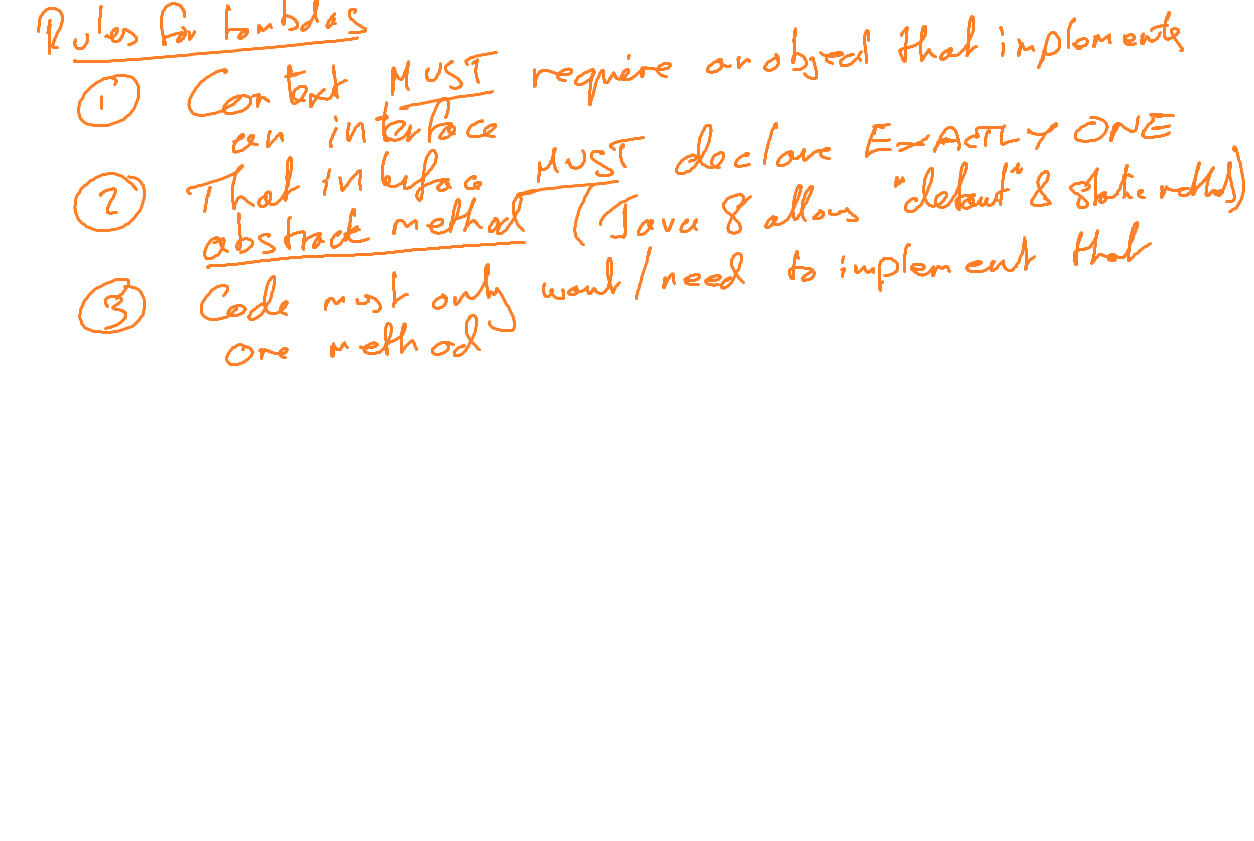 Rules for Lambdas
① Context MUST require an object that implements
an interface
② That interface MUST declare EXACTLY ONE
abstract method (Java 8 allows "default" & static methods)
③ Code must only want/need to implement that
one method